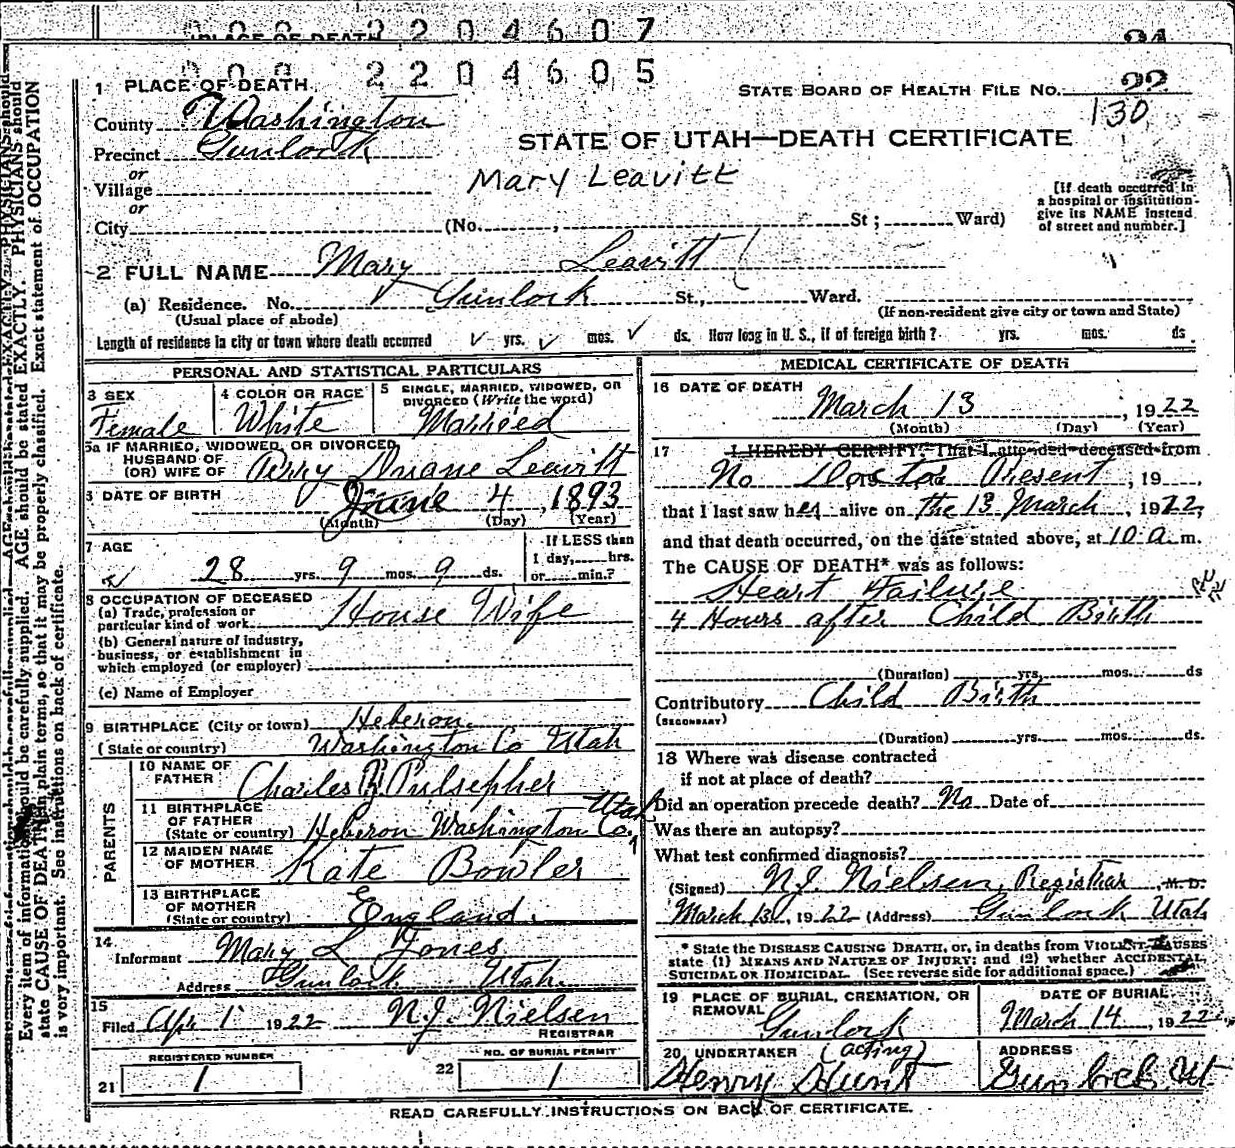 2204607
PLACE OF DEATH
000 2204605
1 PLACE OF DEATH
STATE BOARD OF HEALTH FILE NO. 22
130
County Washington
STATE OF UTAH—DEATH CERTIFICATE
Precinct Gunlock
or
Village
Mary Leavitt
or
[If death occurred in
a hospital or institution
give its NAME instead
of street and number.]
City (No. , St ; Ward)
2 FULL NAME Mary Leavitt
(a) Residence. No. Gunlock St., Ward.
(Usual place of abode) (If non-resident give city or town and State)
Length of residence in city or town where death occurred √ yrs. √ mos. √ ds. How long in U. S., if of foreign birth? yrs. mos. ds.
PERSONAL AND STATISTICAL PARTICULARS
3 SEX
Female
4 COLOR OR RACE
White
5 SINGLE, MARRIED, WIDOWED, OR
DIVORCED (Write the word)
Married
5a IF MARRIED, WIDOWED, OR DIVORCED
HUSBAND OF
(OR) WIFE OF Duane Leavitt
6 DATE OF BIRTH June 4, 1893
(Month) (Day) (Year)
7 AGE
28 yrs. 9 mos. 9 ds.
If LESS than
1 day, hrs.
or min.?
8 OCCUPATION OF DECEASED
(a) Trade, profession or
particular kind of work House Wife
(b) General nature of industry,
business, or establishment in
which employed (or employer)
(c) Name of Employer
9 BIRTHPLACE (City or town) Heberon.
(State or country) Washington Co Utah
PARENTS
10 NAME OF
FATHER Charles Pulsepher
11 BIRTHPLACE
OF FATHER
(State or country) Heberon Washington Co, Utah
12 MAIDEN NAME
OF MOTHER Kate Bowler
13 BIRTHPLACE
OF MOTHER
(State or country) England.
14
Informant Mary L Jones
Address Gunlock Utah.
15
Filed Apr 1 1922 N.J. Nielsen
REGISTRAR
REGISTERED NUMBER
21 1
NO. OF BURIAL PERMIT
22 1
MEDICAL CERTIFICATE OF DEATH
16 DATE OF DEATH
March 13, 1922
(Month) (Day) (Year)
17 I HEREBY CERTIFY, That I attended deceased from
No Doctor Present, 19
that I last saw her alive on the 13 March, 1922,
and that death occurred, on the date stated above, at 10 a m.
The CAUSE OF DEATH* was as follows:
Heart Failure
4 Hours after Child Birth
(Duration) yrs. mos. ds
Contributory Child Birth
(SECONDARY)
(Duration) yrs. mos. ds.
18 Where was disease contracted
if not at place of death?
Did an operation precede death? No Date of
Was there an autopsy?
What test confirmed diagnosis?
(Signed) N.J. Nielsen, Registrar, M. D.
March 13, 1922 (Address) Gunlock Utah
* State the DISEASE CAUSING DEATH, or, in deaths from VIOLENT CAUSES
state (1) MEANS AND NATURE OF INJURY; and (2) whether ACCIDENTAL,
SUICIDAL OR HOMICIDAL. (See reverse side for additional space.)
19 PLACE OF BURIAL, CREMATION, OR
REMOVAL
Gunlock
DATE OF BURIAL
March 14, 1922
20 UNDERTAKER (acting)
Henry Hunt
ADDRESS
Gunlock Ut
READ CAREFULLY INSTRUCTIONS ON BACK OF CERTIFICATE.
Every item of information should be carefully supplied. AGE should be stated EXACTLY. PHYSICIANS should
state CAUSE OF DEATH in plain terms, so that it may be properly classified. Exact statement of OCCUPATION
is very important. See instructions on back of certificate.